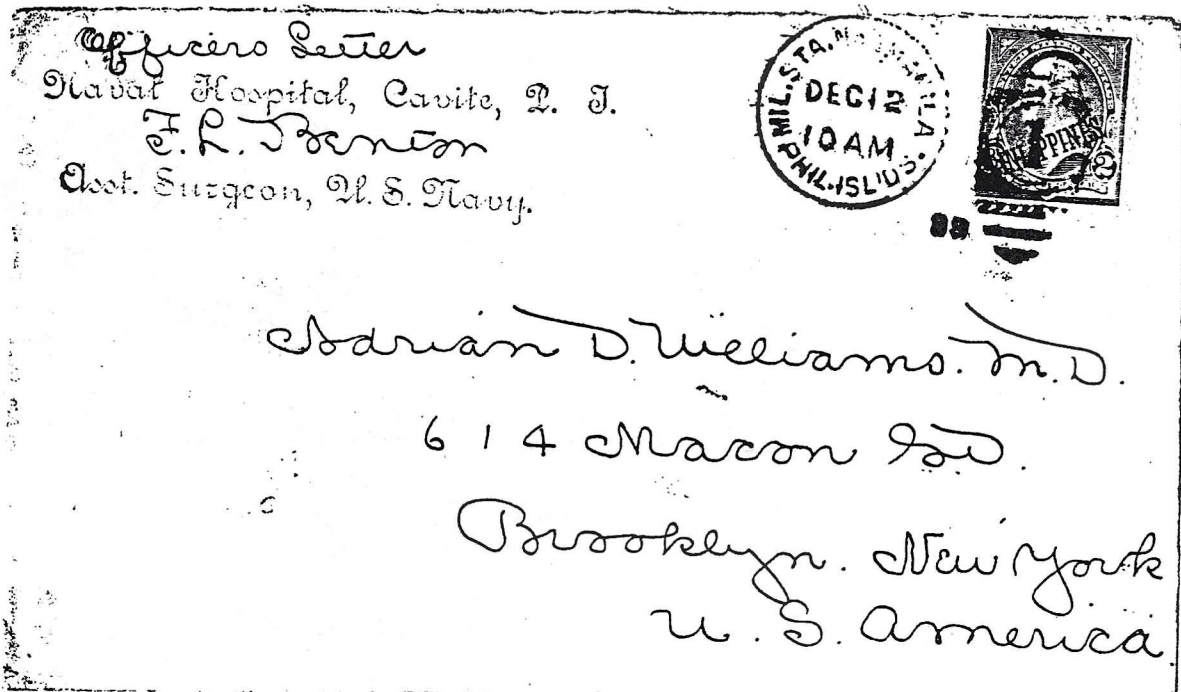 Officers Letter
Naval Hospital, Cavite, P. I.
F. L. Benton
Asst. Surgeon, U. S. Navy.
MIL. STA. No. 1 MANILA
DEC 12
10 AM
PHIL. ISL'DS.
99
PHILIPPINES
2
Adrian D. Williams. M. D.
614 Macon St.
Brooklyn. New York
U. S. America